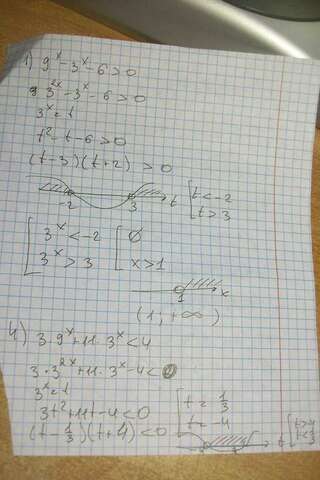 1) 9^x - 3^x - 6 > 0
3^2x - 3^x - 6 > 0
3^x = t
t² - t - 6 > 0
(t - 3)(t + 2) > 0
-2 3 t [ t < -2
t > 3
[ 3^x < -2 [ ∅
3^x > 3 x > 1
1 x
(1; +∞)
4) 3·9^x + 11·3^x < 4
3·3^2x + 11·3^x - 4 < 0
3^x = t
3t² + 11t - 4 < 0
[ t = 1/3
t = -4
(t - 1/3)(t + 4) < 0
t